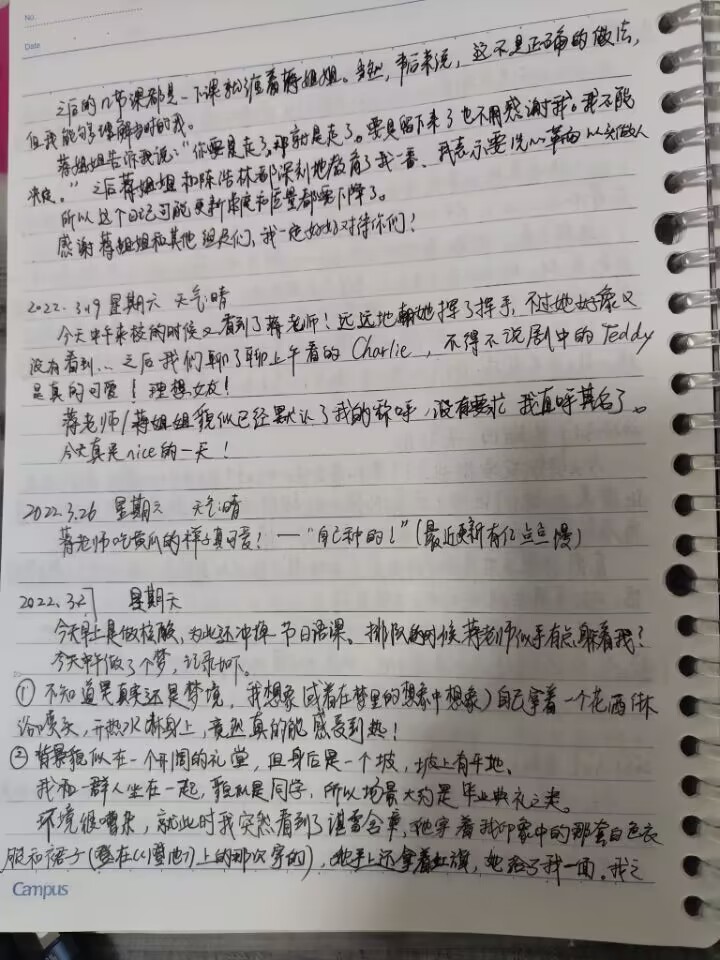 No.
Date
之后的几节课都是一下课就缠着蒋姐姐。当然,事后来说,这不是正确的做法,
但我能够理解当时的我。
蒋姐姐告诉我说:“你要是走了,那就是走了。要是留下来了也不用感谢我。我不能
决定。”之后蒋姐姐和陈浩林都深刻地教育了我一番、我表示要洗心革面 以
所以这个日记可能更新速度和质量都要下降了。
感谢蒋姐姐和其他组员们,我一定好好对待你们!
2022.3.19 星期六 天气:晴
今天中午来校的时候又看到了蒋老师!远远地朝她挥了挥手,不过她好像又
没有看到... 之后我们聊了聊上午看的 Charlie,不得不说剧中的 Teddy
是真的可爱!理想女友!
蒋老师/蒋姐姐貌似已经默认了我的称呼,没有要求 我直呼其名了。
今天真是nice的一天!
2022.3.26 星期六 天气:晴
蒋老师吃黄瓜的样子真可爱!——“自己种的!”(最近更新有亿点点慢)
2022.3.27 星期天
今天早上是做核酸,为此还冲掉一节日语课。排队的时候蒋老师似乎有点躲着我?
今天中午做了个梦,记录如下。
① 不知道是真实还是梦境,我想象(或者在梦里的想象中想象)自己拿着一个花洒(淋
浴喷头,开热水淋身上,竟然真的能感受到热!
② 背景貌似在一个开阔的礼堂,但身后是一个坡,坡上有平地、
我和一群人坐在一起,貌似是同学,所以场景大约是毕业典礼之类。
环境很嘈杂,就此时我突然看到了谌雪含章,她穿着我印象中的那套白色衣
服和裙子(上的那次穿的),她手上还拿着红旗,她给了我一面。我之
Campus